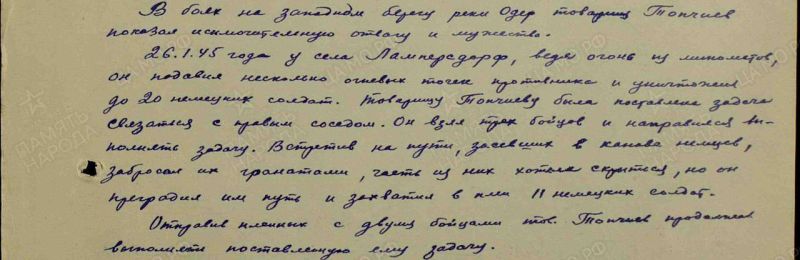 В боях на западном берегу реки Одер товарищ Топчиев
показал исключительную отвагу и мужество.
26.1.45 года у села Ламперсдорф, ведя огонь из минометов,
он подавил несколько огневых точек противника и уничтожил
до 20 немецких солдат. Товарищу Топчиеву была поставлена задача
связаться с правым соседом. Он взял трех бойцов и направился вы-
полнять задачу. Встретив на пути, засевших в канаве немцев,
забросал их гранатами, часть из них хотела скрыться, но он
преградил им путь и захватил в плен 11 немецких солдат.
Отправив пленных с двумя бойцами тов. Топчиев продолжал
выполнять поставленную ему задачу.
ПАМЯТЬ
НАРОДА